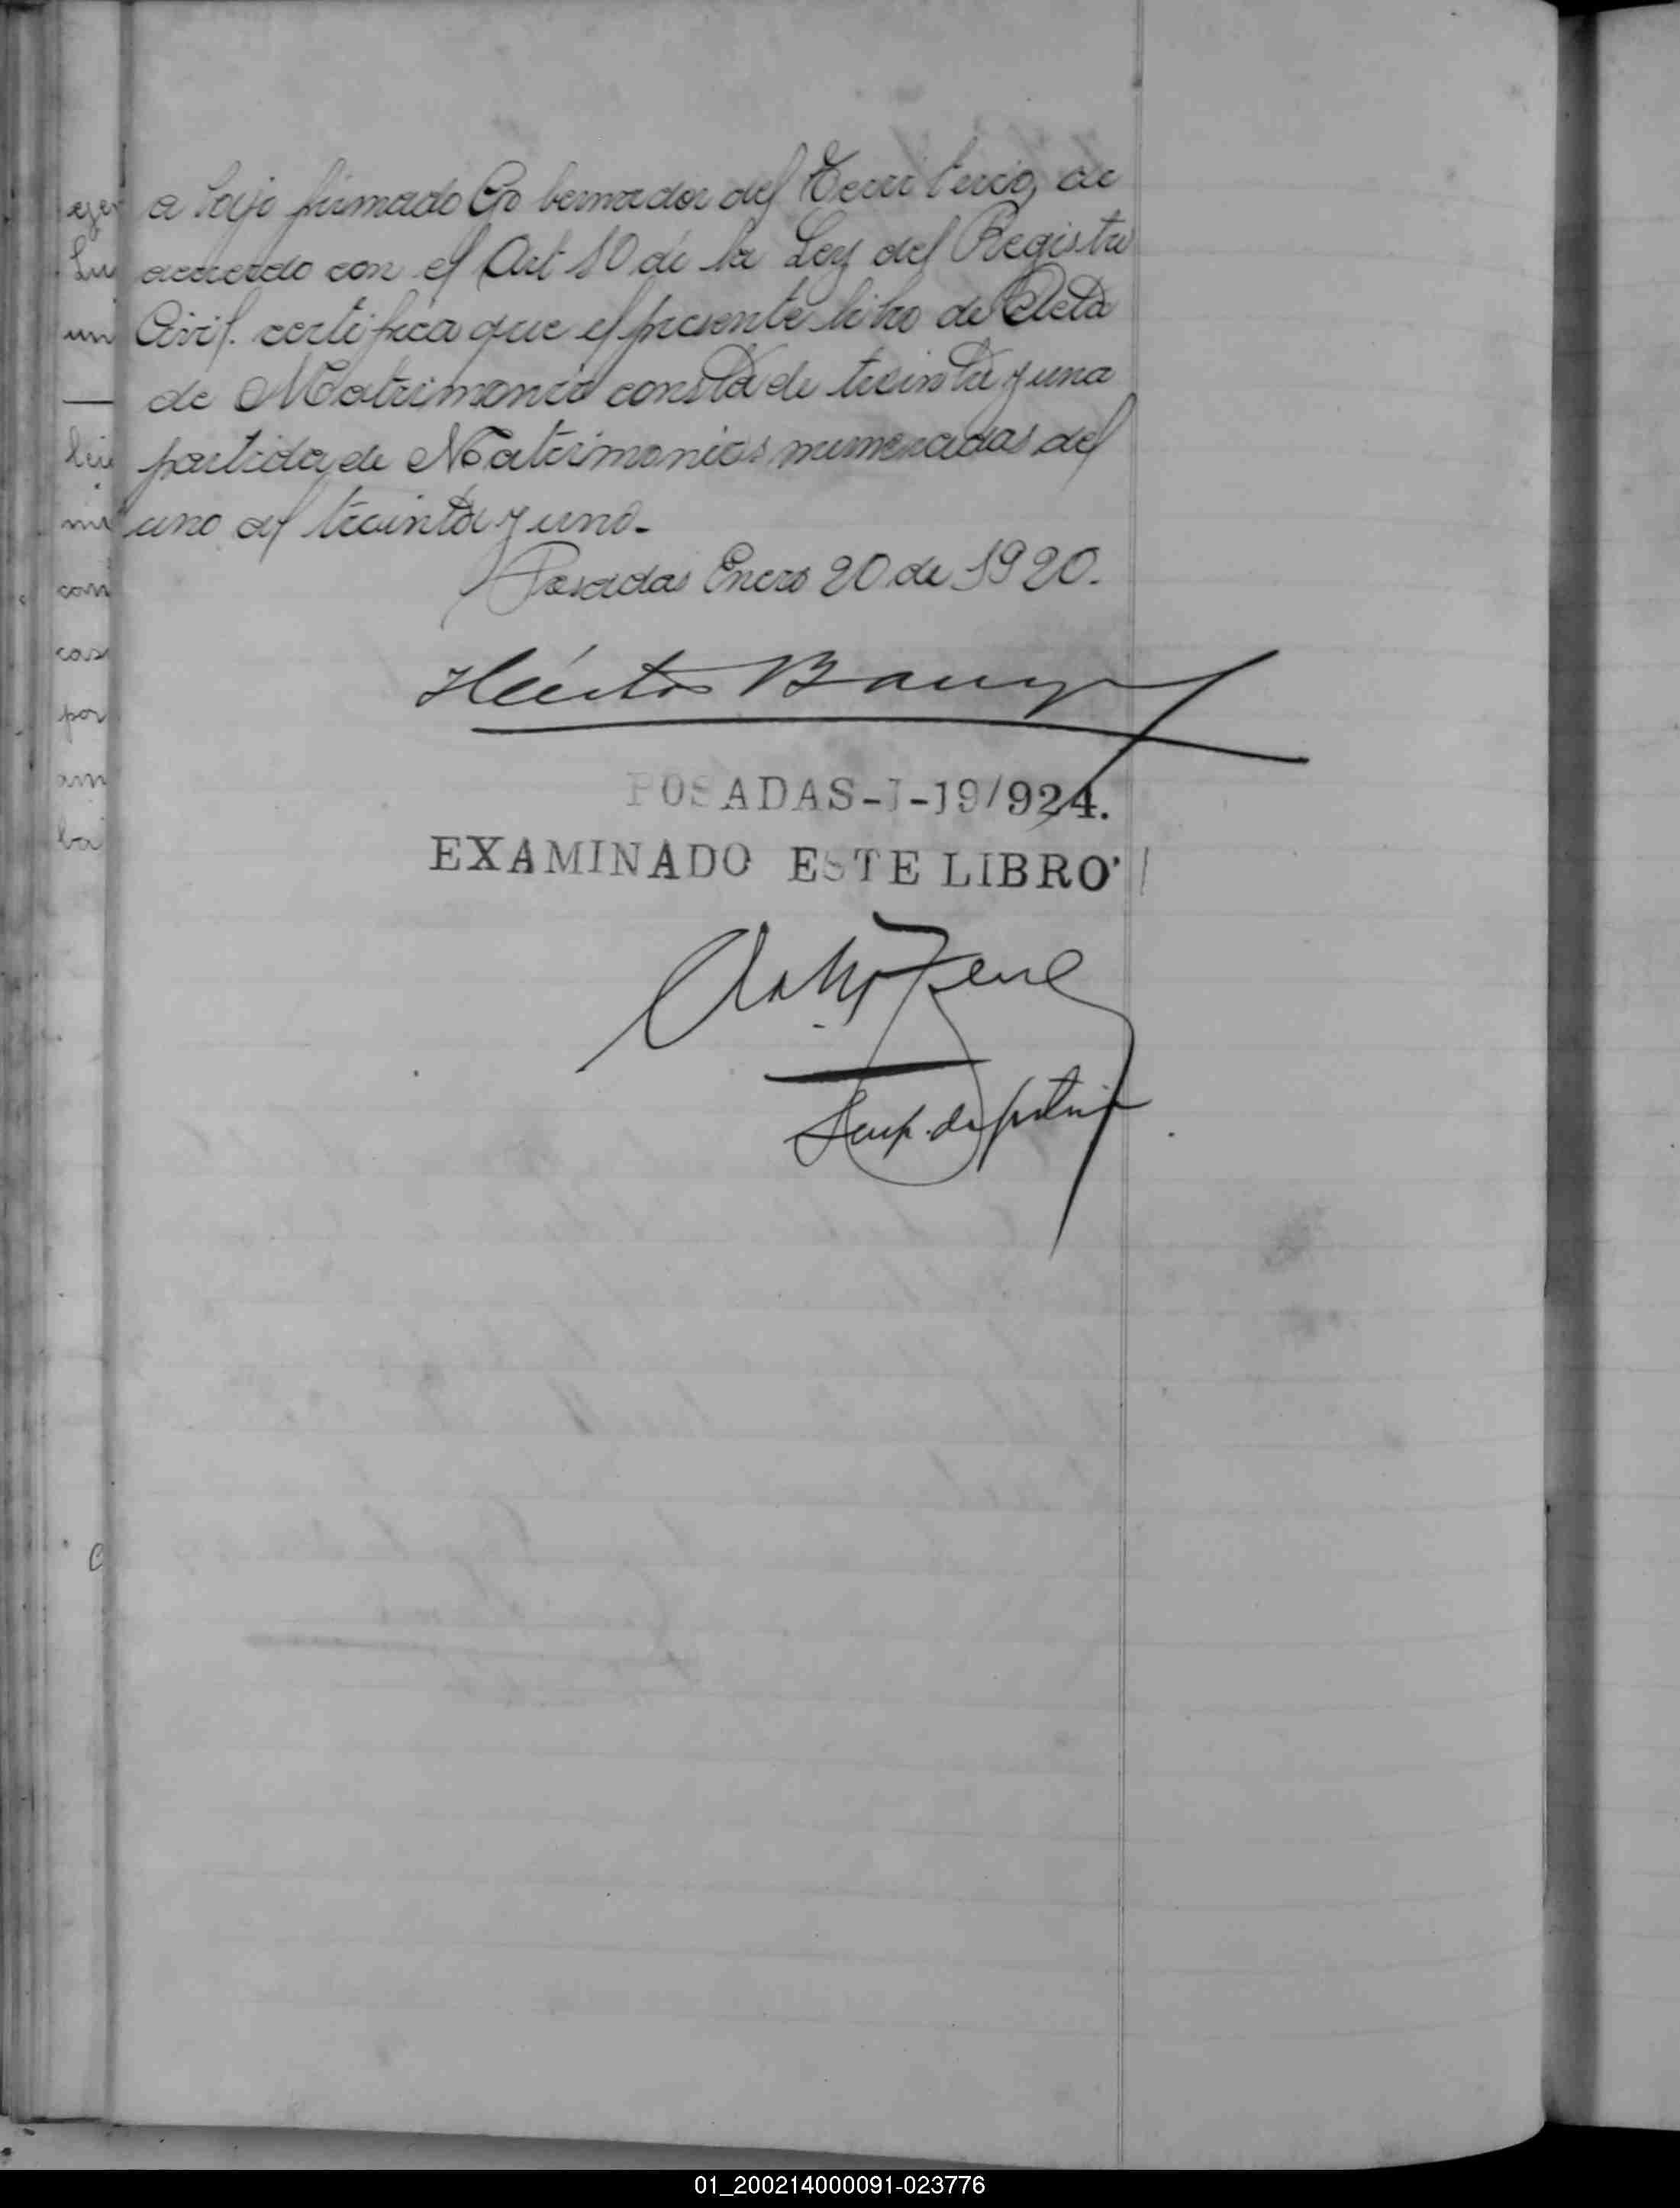 a bajo firmado Gobernador del Territerio, de
acuerdo con el Art 10 de la Ley del Registro
Civil. certifica que el presente libro de Acta
de Matrimonio consta de treinta y una
partida de Matrimonios numeradas del
uno al treinta y uno.
Posadas Enero 20 de 1920.
Héctor
POSADAS-I-19/924.
EXAMINADO ESTE LIBRO
01_200214000091-023776